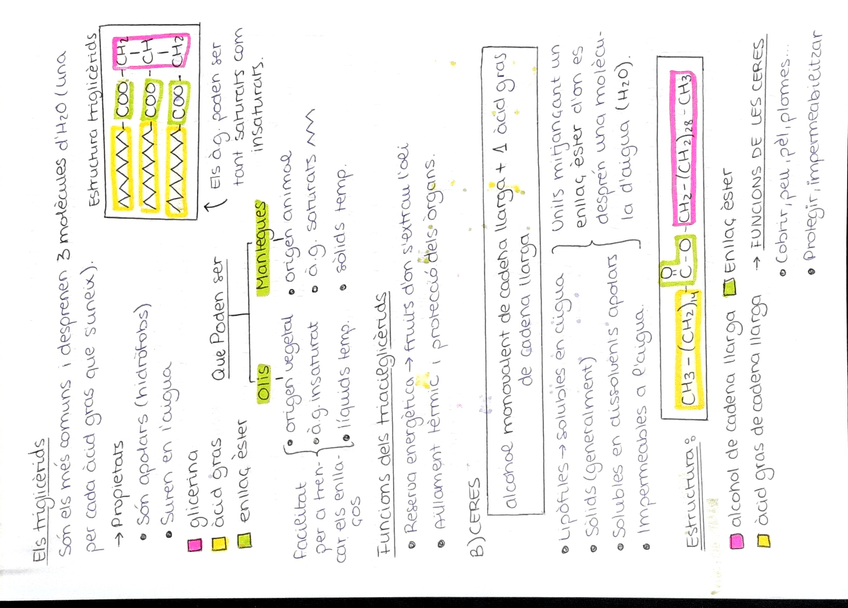 Els triglicèrids
Són els més comuns i desprenen 3 molècules d'H2O (una
per cada àcid gras que s'uneix).
Estructura triglicèrids
COO-CH2
COO-CH
COO-CH2
→ Propietats
• Són apolars (hidròfobs)
• Suren en l'aigua
glicerina
àcid gras
enllaç èster
Els àg. poden ser
tant saturats com
insaturats.
Que Poden ser
Olis
Mantegues
Facilitat
per a tren-
car els enlla-
ços
• origen vegetal
• àg. insaturat
• líquids temp.
• origen animal
• à.g. saturats
• sòlids temp.
Funcions dels triacilglicèrids
• Reserva energètica → fruits d'on s'extrau l'oli
• Aïllament tèrmic i protecció dels òrgans.
B) CERES
alcohol monovalent de cadena llarga + 1 àcid gras
de cadena llarga.
• Lipòfiles → solubles en aigua
• Sòlids (generalment)
• Solubles en dissolvents apolars
• Impermeables a l'aigua.
Units mitjançant un
enllaç èster d'on es
despren una molècu-
la d'aigua (H2O).
Estructura:
O
CH3-(CH2)14-C-O-CH2-(CH2)28-CH3
alcohol de cadena llarga
Enllaç èster
àcid gras de cadena llarga
→ FUNCIONS DE LES CERES
• Cobrir, peu, pèl, plomes...
• Protegir, impermeabilitzar